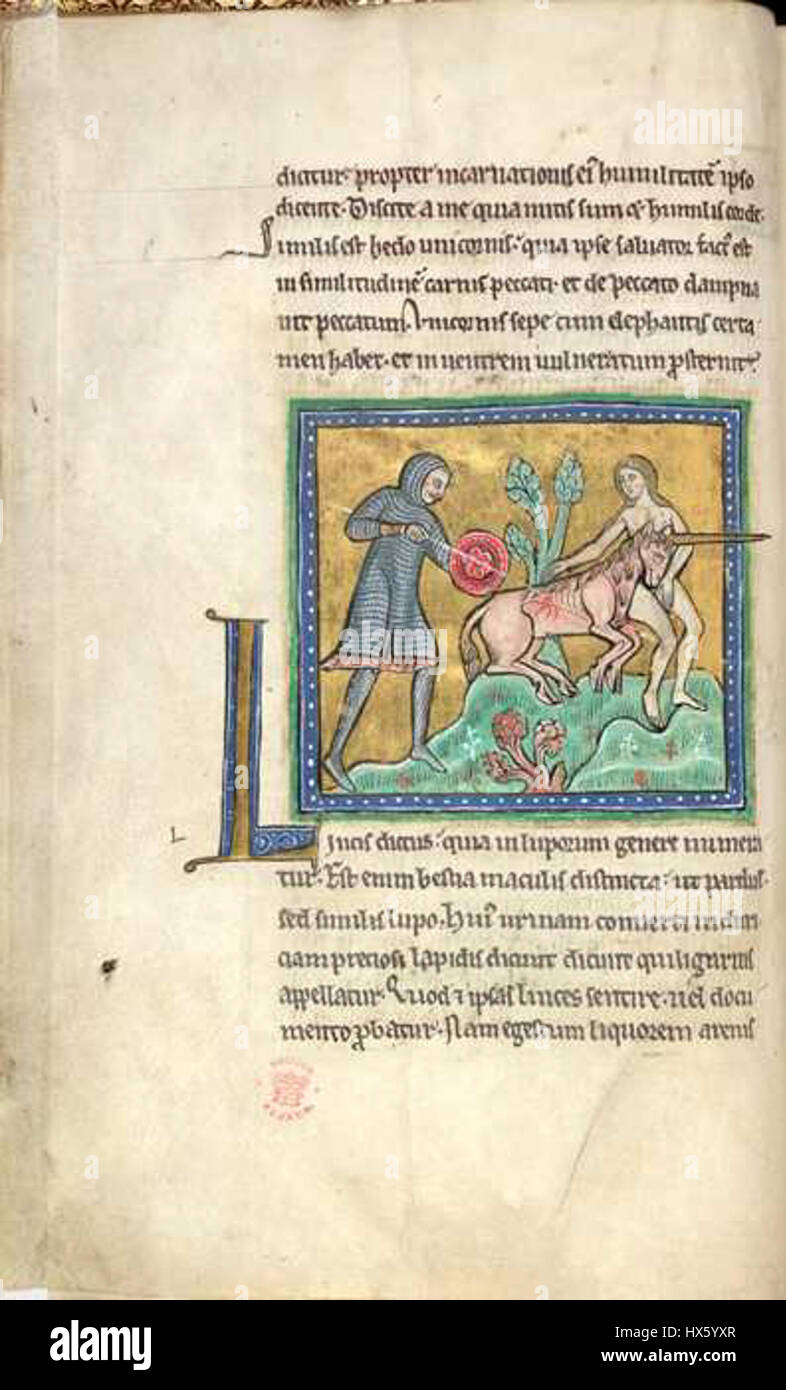 dicitur propter incarnationis ei humilitatē ipso
dicente. Discite a me quia mitis sum & humilis corde.
Similis est hedo unicornis. quia ipse saluator facť est
in similitudinē carnis peccati. et de peccato dampna
uit peccatum. Vnicornis sepe cum elephantis certa
men habet. et in uentrem uulneratum ꝓsternit.
L
Lincis dictus. quia in luporum genere numera
tur. Est enim bestia maculis distincta. ut pardus.
sed similis lupo. Huiꝰ urinam conuerti in duri
ciam preciosi lapidis dicunt qui ligurius
appellatur. Quod & ipsas linces sentire. uel docu
mento ꝓbatur. Nam egestum liquorem arenis
alamy
alamy stock photo
HX5YXR
www.alamy.com